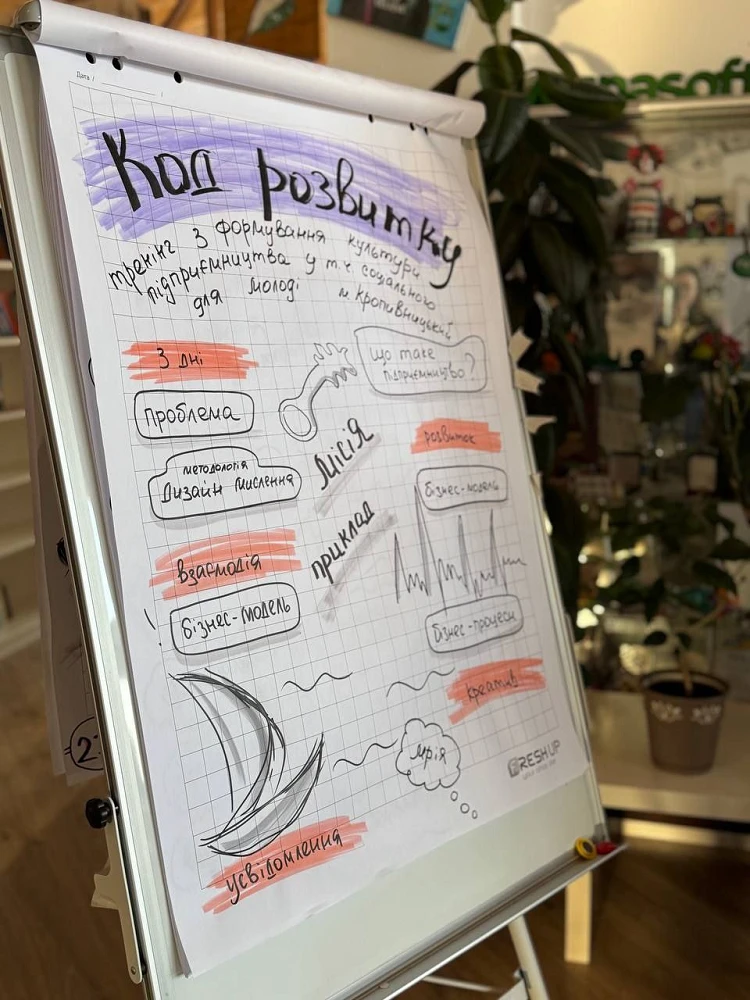 Дата /
Код розвитку
тренінг з формування культури
підприємництва у т.ч. соціального
для молоді м. Кропивницький
3 дні
що таке
підприємництво?
проблема
Місія
розвиток
методологія
Дизайн мислення
бізнес-модель
приклад
взаємодія
! бізнес-модель
бізнес-процеси
креатив
мрія
FRESH UP
усвідомлення
2